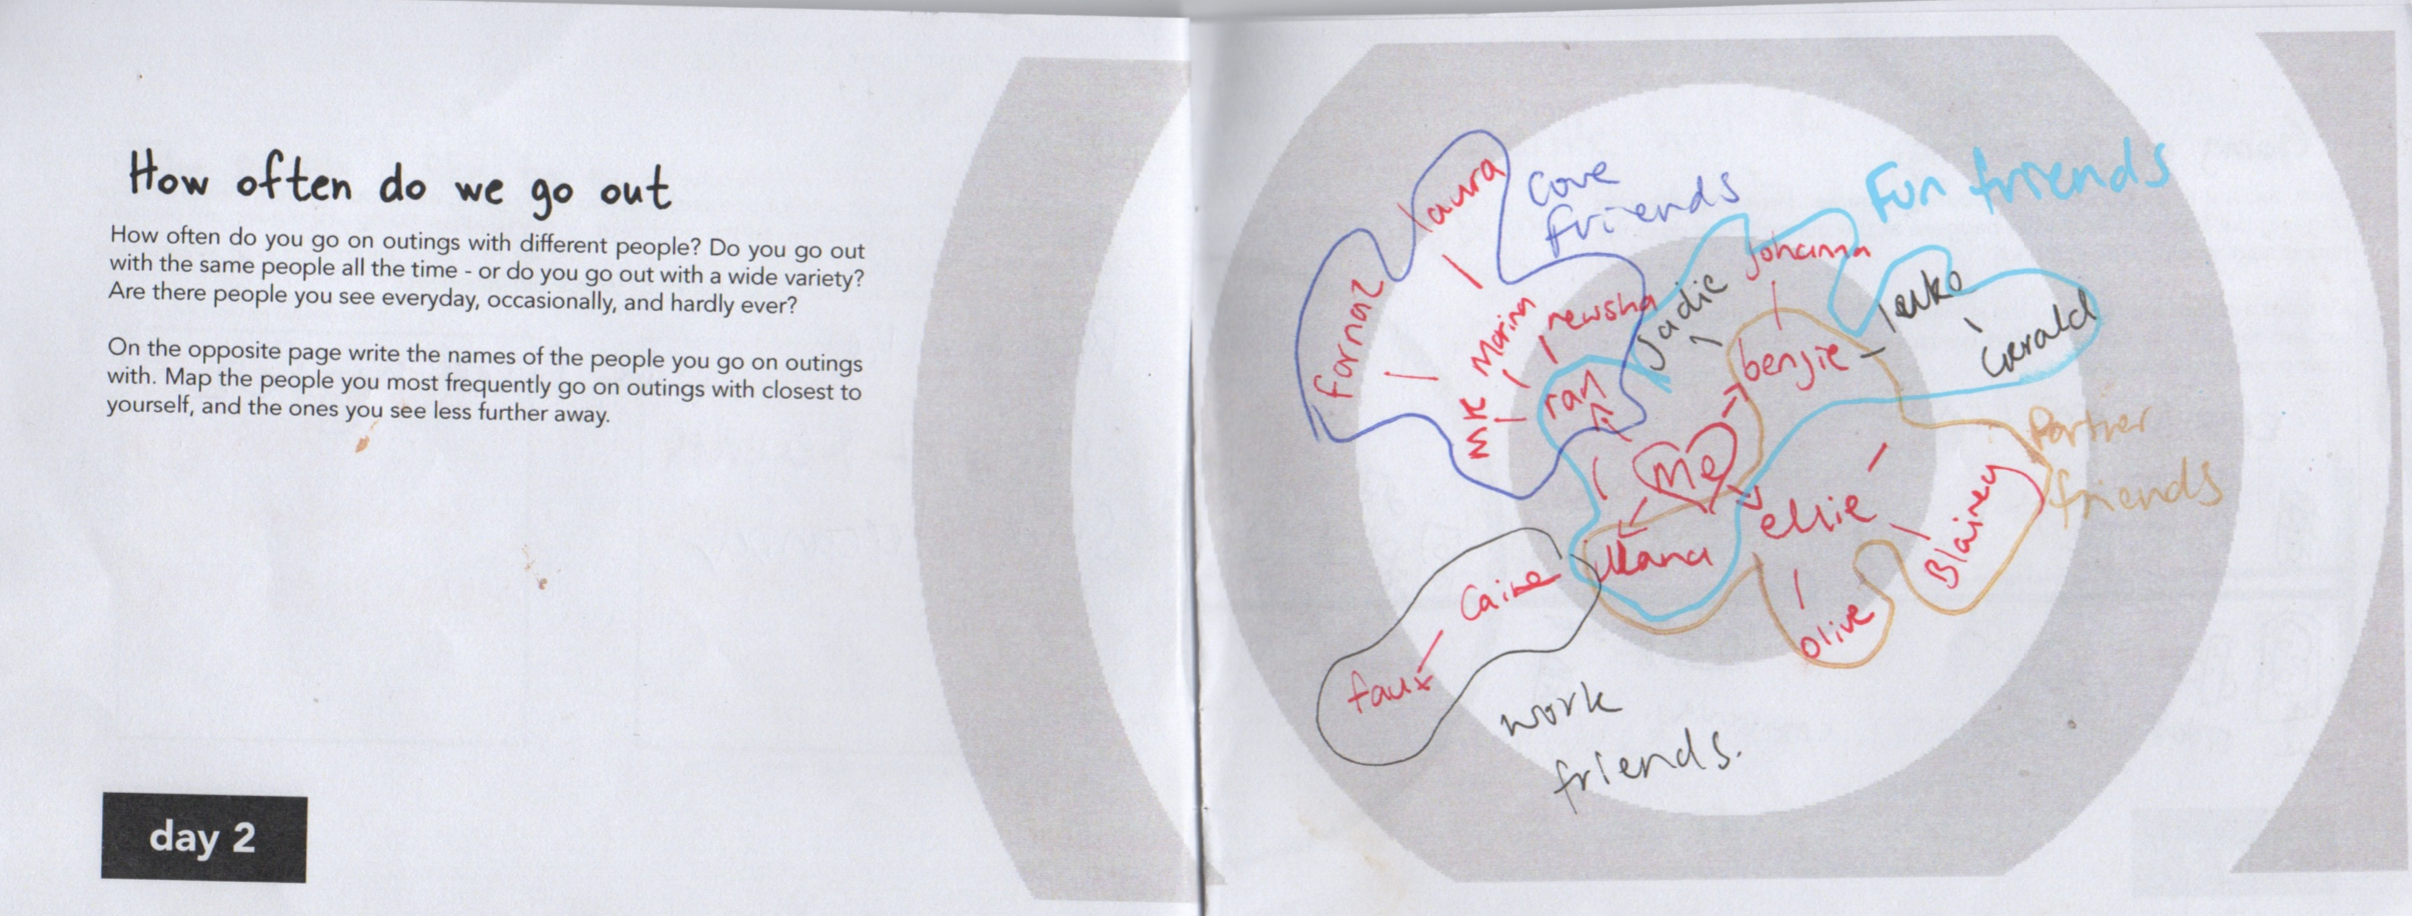 How often do we go out
How often do you go on outings with different people? Do you go out
with the same people all the time - or do you go out with a wide variety?
Are there people you see everyday, occasionally, and hardly ever?
On the opposite page write the names of the people you go on outings
with. Map the people you most frequently go on outings with closest to
yourself, and the ones you see less further away.
day 2
laura
farnaz
core
friends
Marina
newsha
MK
ran
Fun friends
Johanna
Jadie
benjie
Gerald
me
ellie
Partner
friends
Blainey
olive
faux
work
friends.